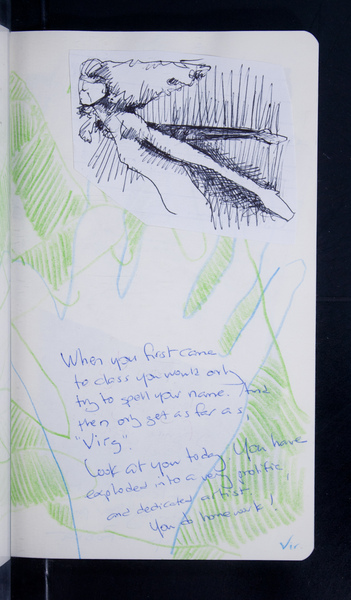 When you first came
to class you would only
try to spell your name. And
then only get as far as,
"Virg".
Look at you today. You have
exploded into a very prolific,
and dedicated artist.
You do homework!
Vir